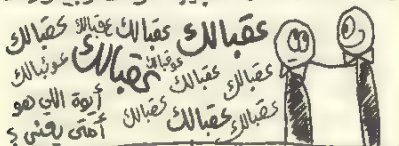 عقبالك عقبالك عقبالك عقبالك
عقبالك عوقبالك عقبالك عوئبالك
عقبالك عقبالك عقبالك
عقبالك عقبالك عقبالك
أيوة اللي هو
أمتى يعني؟